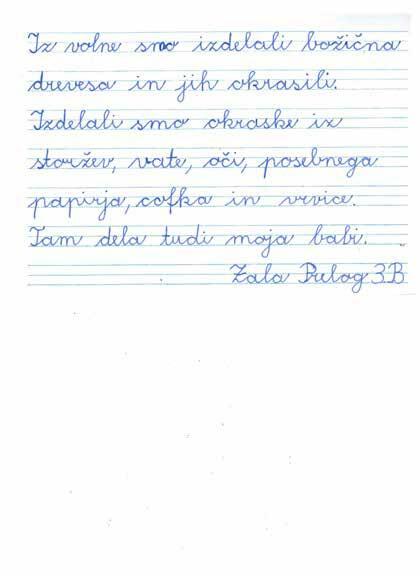 Iz volne smo izdelali božična
drevesa in jih okrasili.
Izdelali smo okraske iz
storžev, vate, oči, posebnega
papirja, cofka in vrvice.
Tam dela tudi moja babi.
Zala Prelog 3B